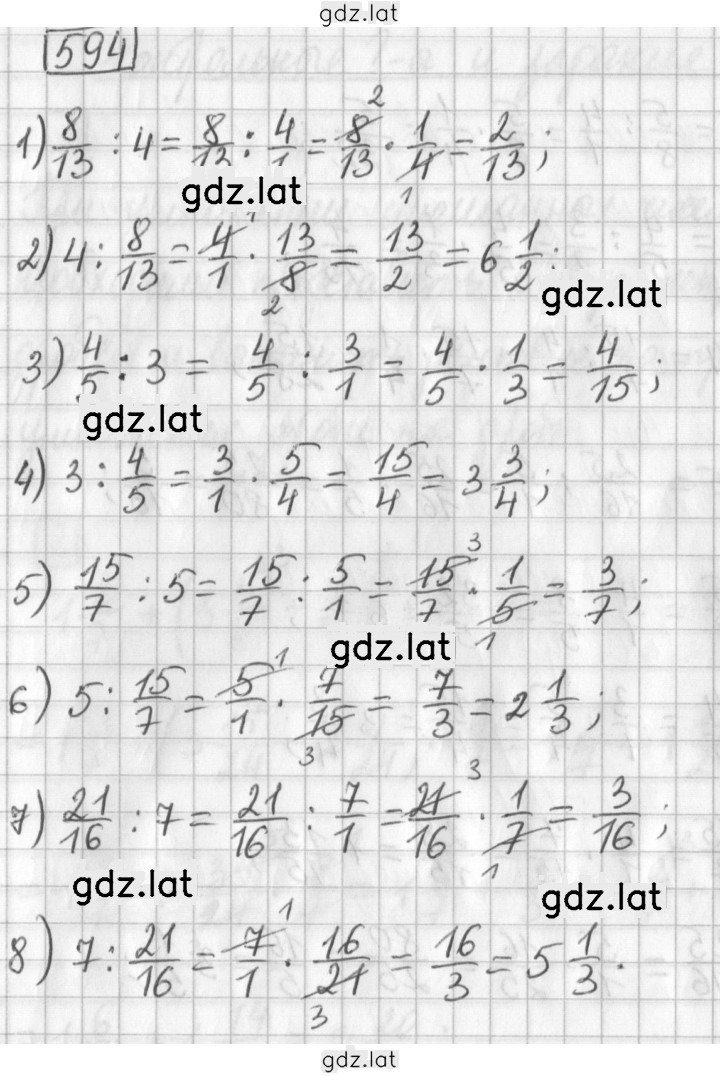 gdz.lat
594
1) 8/13 : 4 = 8/13 : 4/1 = 8/13 · 1/4 = 2/13;
2 1
gdz.lat
2) 4 : 8/13 = 4/1 · 13/8 = 13/2 = 6 1/2.
1 2
gdz.lat
3) 4/5 : 3 = 4/5 : 3/1 = 4/5 · 1/3 = 4/15;
gdz.lat
4) 3 : 4/5 = 3/1 · 5/4 = 15/4 = 3 3/4;
5) 15/7 : 5 = 15/7 : 5/1 = 15/7 · 1/5 = 3/7;
3 1
gdz.lat
6) 5 : 15/7 = 5/1 · 7/15 = 7/3 = 2 1/3;
1 3
7) 21/16 : 7 = 21/16 : 7/1 = 21/16 · 1/7 = 3/16;
3 1
gdz.lat
gdz.lat
8) 7 : 21/16 = 7/1 · 16/21 = 16/3 = 5 1/3.
1 3
gdz.lat